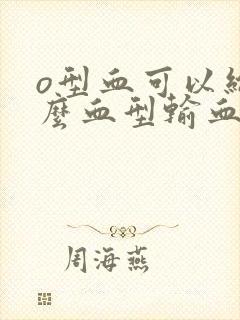 o型血可以给
麼血型輸血
周海燕